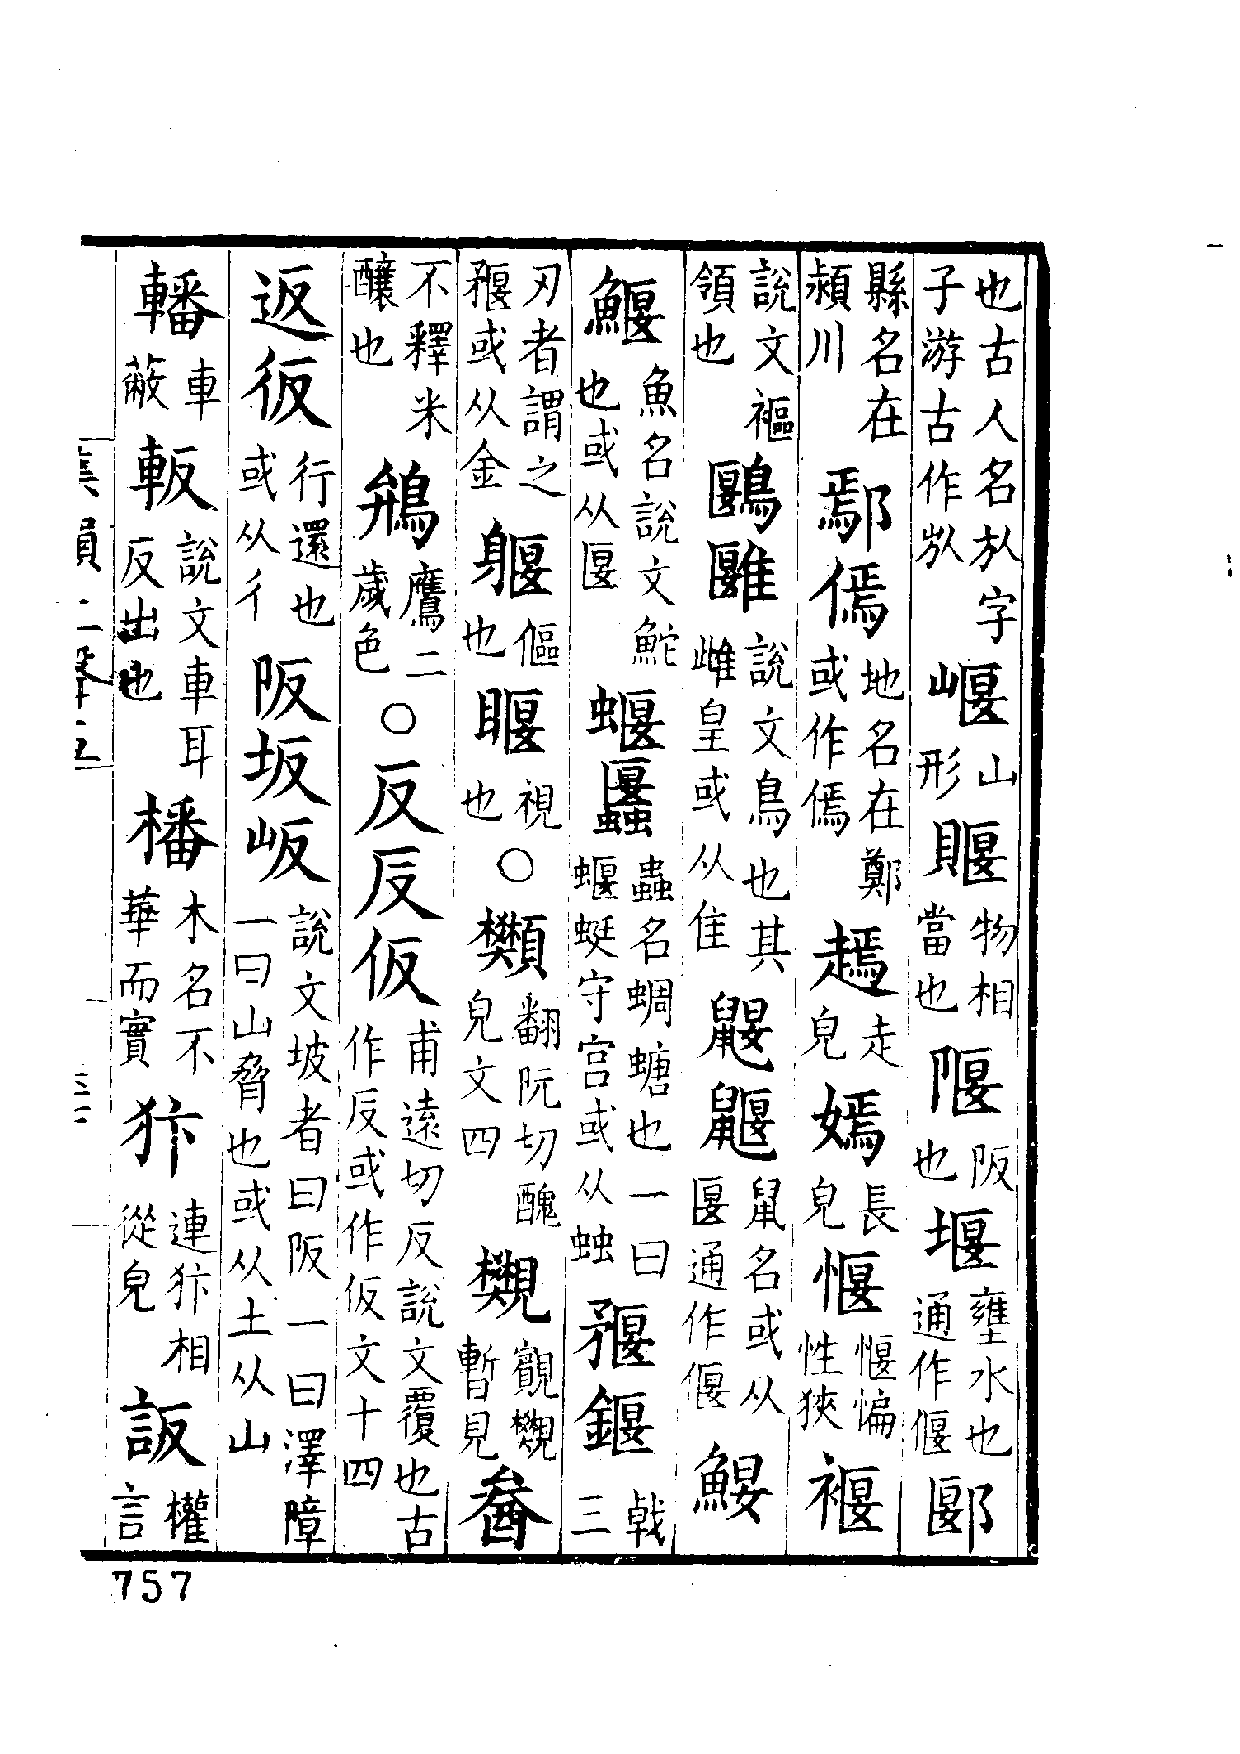 也古人名㫃字子游古作㫃山形䞁物相當也隁阪也堰壅水也通作偃郾
縣名在潁川鄢傿地名在鄭或作傿走皃嫣長皃㥼㥼惼性狹褗
說文䙔領也鶠說文鳥也其雌皇或从隹鼹鼴鼠名或从匽通作偃
鰋魚名說文鮀也或从匽蝘蟲名蜩螗也一曰蝘蜓守宮或从䖵戟三
刃者謂之或从金躽傴也䁙視也○䫶翻阮切醜皃文四䙪䙪暫見
不釋米釀也鴘鷹二歲色○反仮甫遠切反說文覆也古作或作仮文十四
返仮行還也或从彳阪坂岅說文坡者曰阪一曰澤障一曰山脅也或从土从山
轓車蔽䡊說文車耳反出也橎木名不華而實犿連犿相從皃權言
集韻上聲五
757